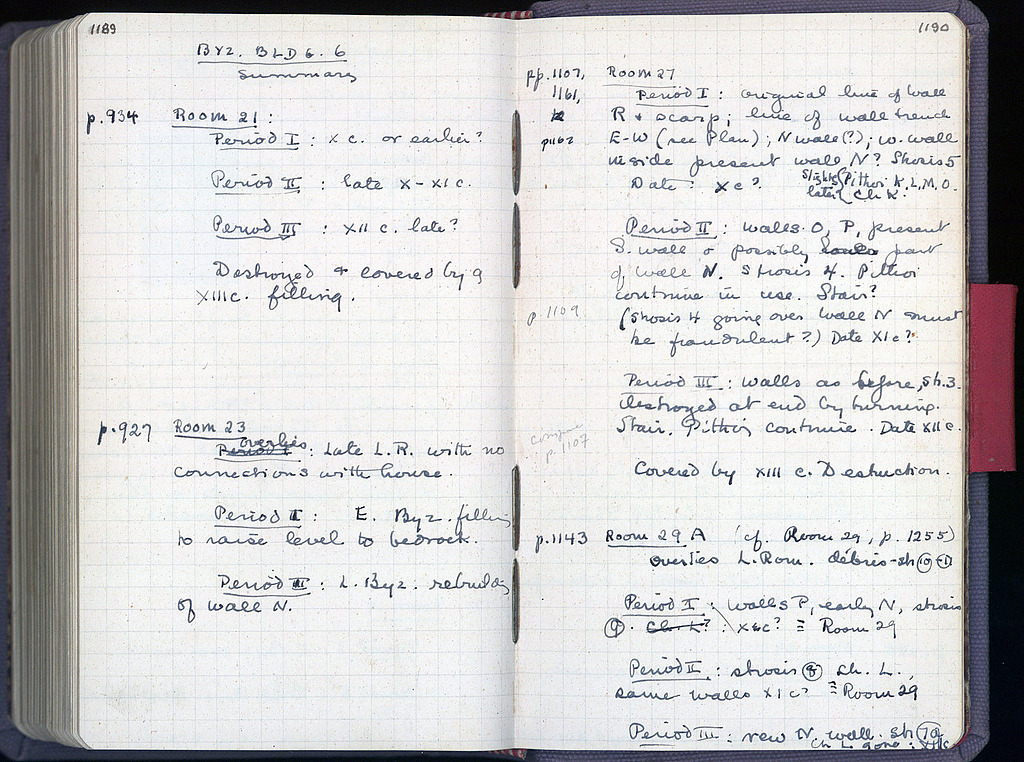 1189
BYZ. BLDG. 6
Summary
p.934 Room 21:
Period I : X c. or earlier?
Period II : late X-XI c.
Period III : XII c. late?
Destroyed & covered by
XIII c. filling.
p.927 Room 23
overlies
Period I : Late L.R. with no
connections with house.
Period I : E. Byz. filling
to raise level to bedrock.
Period II : L. Byz. rebuilding
of wall N.
1190
pp. 1107, Room 27
1161, Period I : original line of wall
R & scarp; line of wall trench
p1162 E-W (see Plan); N wall (?); W. wall
inside present wall N? Strosis 5
Date: X c? slightly later { Pithoi K, L, M, O.
Ch K.
Period II : walls O, P, present
S. wall & possibly part
of wall N. Strosis 4. Pithoi
continue in use. Stair?
p. 1109 (Strosis 4 going over wall N must
be fraudulent?) Date XI c?
Period III : walls as before, sh. 3.
destroyed at end by burning.
Stair. Pithoi continue. Date XII c.
compare
p. 1107
Covered by XIII c. Destruction.
p. 1143 Room 29 A (cf. Room 29, p. 1255)
overlies L. Rom. débris - sh 10 - 11
Period I : walls P, early N, strosis
9. Ch. L? : X c? ≡ Room 29
Period II : strosis 8 Ch. L.,
same walls XI c? ≡ Room 29
Period III : new N. wall. sh 7a
Ch L gone : XII c